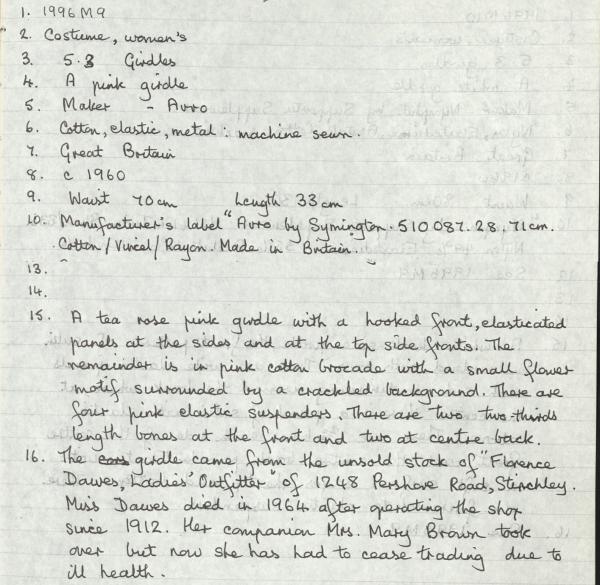 1. 1996 M9
2. Costume, women's
3. 5.3 Girdles
4. A pink girdle
5. Maker - Avro
6. Cotton, elastic, metal : machine sewn.
7. Great Britain
8. c 1960
9. Waist 70cm Length 33cm
10. Manufacturer's label "Avro by Symington. 510087.28, 71cm.
Cotton/Vincel/Rayon. Made in Britain."
13.
14.
15. A tea rose pink girdle with a hooked front, elasticated
panels at the sides and at the top side fronts. The
remainder is in pink cotton brocade with a small flower
motif surrounded by a crackled background. There are
four pink elastic suspenders. There are two two-thirds
length bones at the front and two at centre back.
16. The girdle came from the unsold stock of "Florence
Dawes, Ladies' Outfitter" of 1248 Pershore Road, Stirchley.
Miss Dawes died in 1964 after operating the shop
since 1912. Her companion Mrs. Mary Brown took
over but now she has had to cease trading due to
ill health.